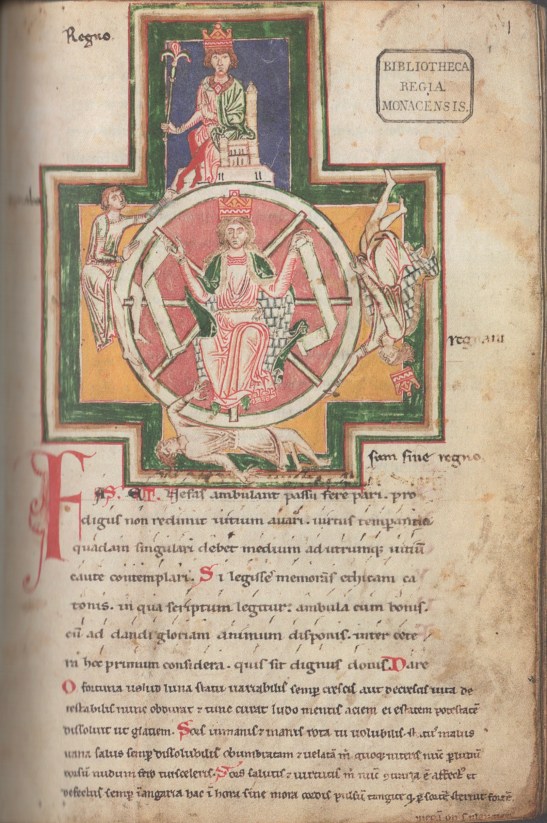 Regno.
BIBLIOTHECA
REGIA
MONACENSIS.
regnaui
sum sine regno.
Fas et nefas ambulant passu fere pari. pro
digus non redimit uitium auari. uirtus temperantia
quadam singulari debet medium ad utrumq; uitiũ
caute contemplari. Si legisse memoras ethicam ca
tonis. in qua scriptum legitur: ambula cum bonis.
cũ ad dandi gloriam animum disponis. inter cete
ra hoc primum considera. quis sit dignus donis. Dare
O fortuna uelud luna statu uariabilis semp̃ crescis aut decrescis uita de
testabilis nunc obdurat & tunc curat ludo mentis aciem egestatem potestatẽ
dissoluit ut glatiem. Sors inmanis & inanis rota tu uolubilis status malus
uana salus semp̃ dissolubilis obumbratam & uelatã m̃ quoq; niteris nũc p̃ ludũ
dorsũ nudum fero tui sceleris. Sors salutis & uirtutis m̃ nũc contraria ẽ affectꝰ et
defectus semp̃ ĩ angaria hac ĩ hora sine mora cordis pulsũ tangite q̃ p̃ sortẽ sternit fortẽ